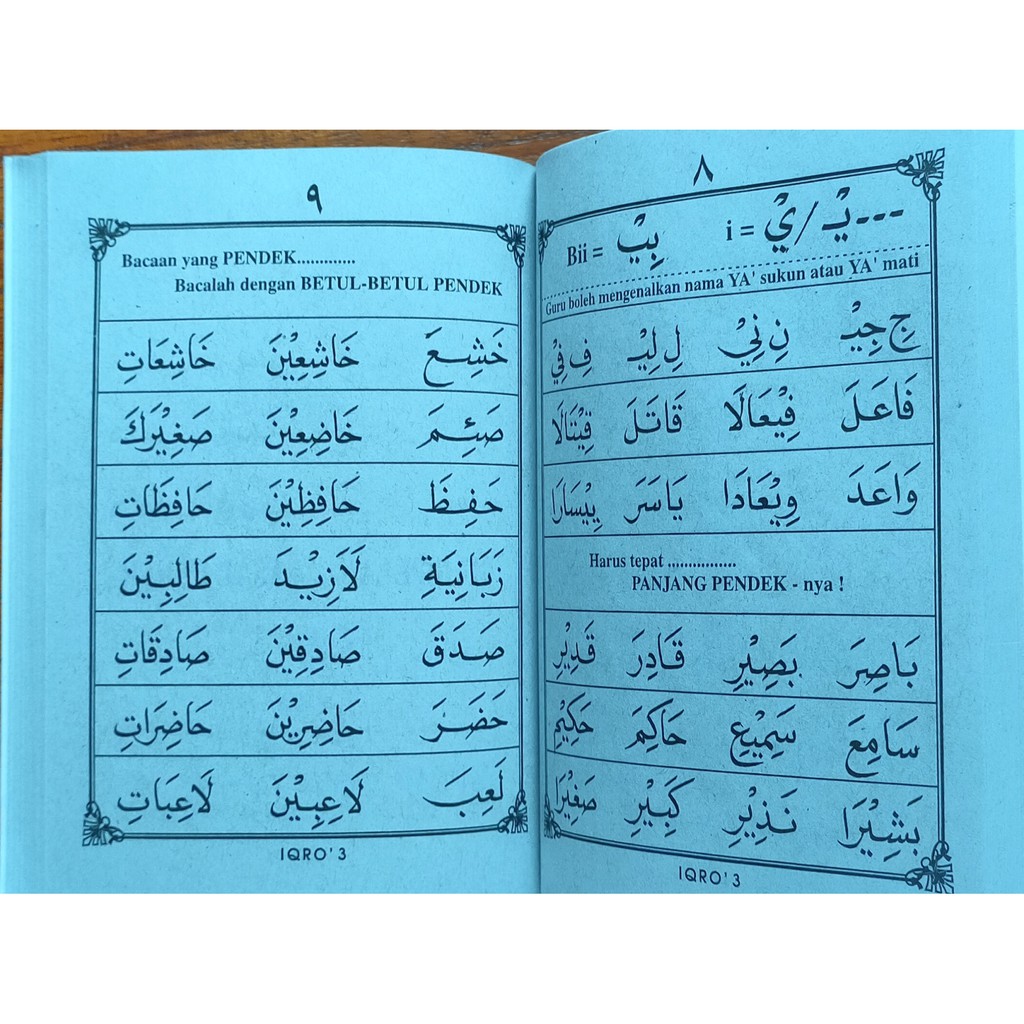 ٨
---يْـ / يْ = i    بِيْ = Bii
Guru boleh mengenalkan nama YA' sukun atau YA' mati
جِ جِيْـ    نِ نِيْ    لِ لِيْـ    فِ فِيْ
فَاعَلَ    فِيْعَالَا    قَاتَلَ    قِيْتَالَا
وَاعَدَ    وِيْعَادَا    يَاسَرَ    يِيْسَارَا
Harus tepat ................
PANJANG PENDEK - nya !
بَاصِرَ    بَصِيْرِ    قَادِرَ    قَدِيْرِ
سَامِعَ    سَمِيْعِ    حَاكِمَ    حَكِيْمِ
بَشِيْرَا    نَذِيْرِ    كَبِيْرِ    صَغِيْرَا
IQRO' 3
٩
Bacaan yang PENDEK.............
Bacalah dengan BETUL-BETUL PENDEK
خَشِعَ    خَاشِعِيْنَ    خَاشِعَاتِ
صَئِمَ    خَاضِعِيْنَ    صَغِيْرَكَ
حَفِظَ    حَافِظِيْنَ    حَافِظَاتِ
زَبَانِيَةِ    لَازِيْدَ    طَالِبِيْنَ
صَدَقَ    صَادِقِيْنَ    صَادِقَاتِ
حَضَرَ    حَاضِرِيْنَ    حَاضِرَاتِ
لَعِبَ    لَاعِبِيْنَ    لَاعِبَاتِ
IQRO' 3